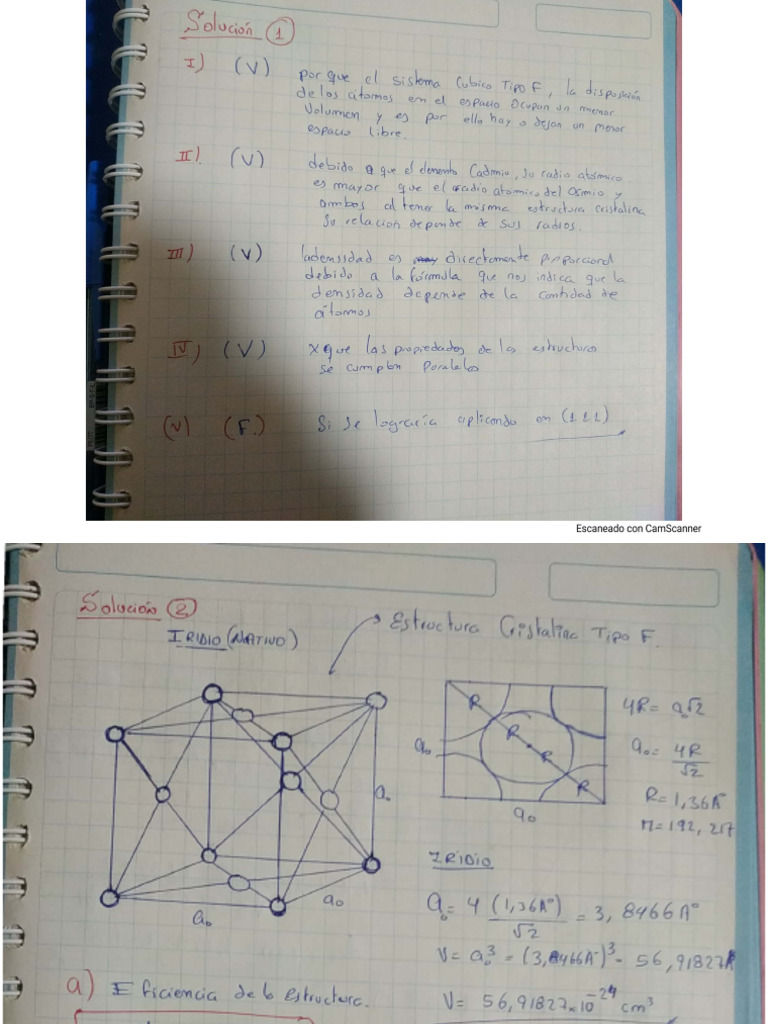 Solución 1
I) (V) por que el sistema Cubico Tipo F, la disposición
de los átomos en el espacio Ocupan un menor
Volumen y es por ello hay o dejan un menor
espacio libre.
II). (V) debido a que el elemento Cadmio, su radio atómico
es mayor que el radio atomico del Osmio y
ambos al tener la misma estructura cristalina
su relacion depende de sus radios.
III) (V) la densidad es directamente proporcional
debido a la fórmula que nos indica que la
densidad depende de la cantidad de
átomos
IV) (V) xque las propiedades de las estructuras
se cumplen paralelas
(V) (F.) Si se lograría aplicando en (111)
Escaneado con CamScanner
Solución 2
IRIDIO (NATIVO)
Estructura Cristalina Tipo F.
4R = a₀√2
a₀ = 4R/√2
R = 1,36A°
M = 192,217
R
R
R
R
a₀
a₀
a₀
a₀
a₀
IRIDIO
a₀ = 4 (1,36A°)/√2 = 3,8466A°
V = a₀³ = (3,8466A°)³ = 56,91827A
V = 56,91827x10⁻²⁴ cm³
a) Eficiencia de la estructura.